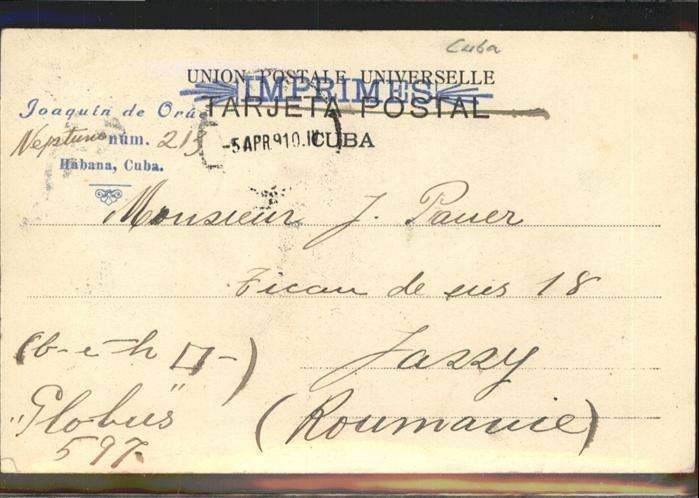 Cuba
UNION POSTALE UNIVERSELLE
IMPRIMES
TARJETA POSTAL
CUBA
Joaquín de Orúe
Neptuno núm. 213
Habana, Cuba.
-5 APR. 910
Monsieur J. Pauer
de sus 18
Jassy
(Roumanie)
(b-e-h -)
"Globus"
597.